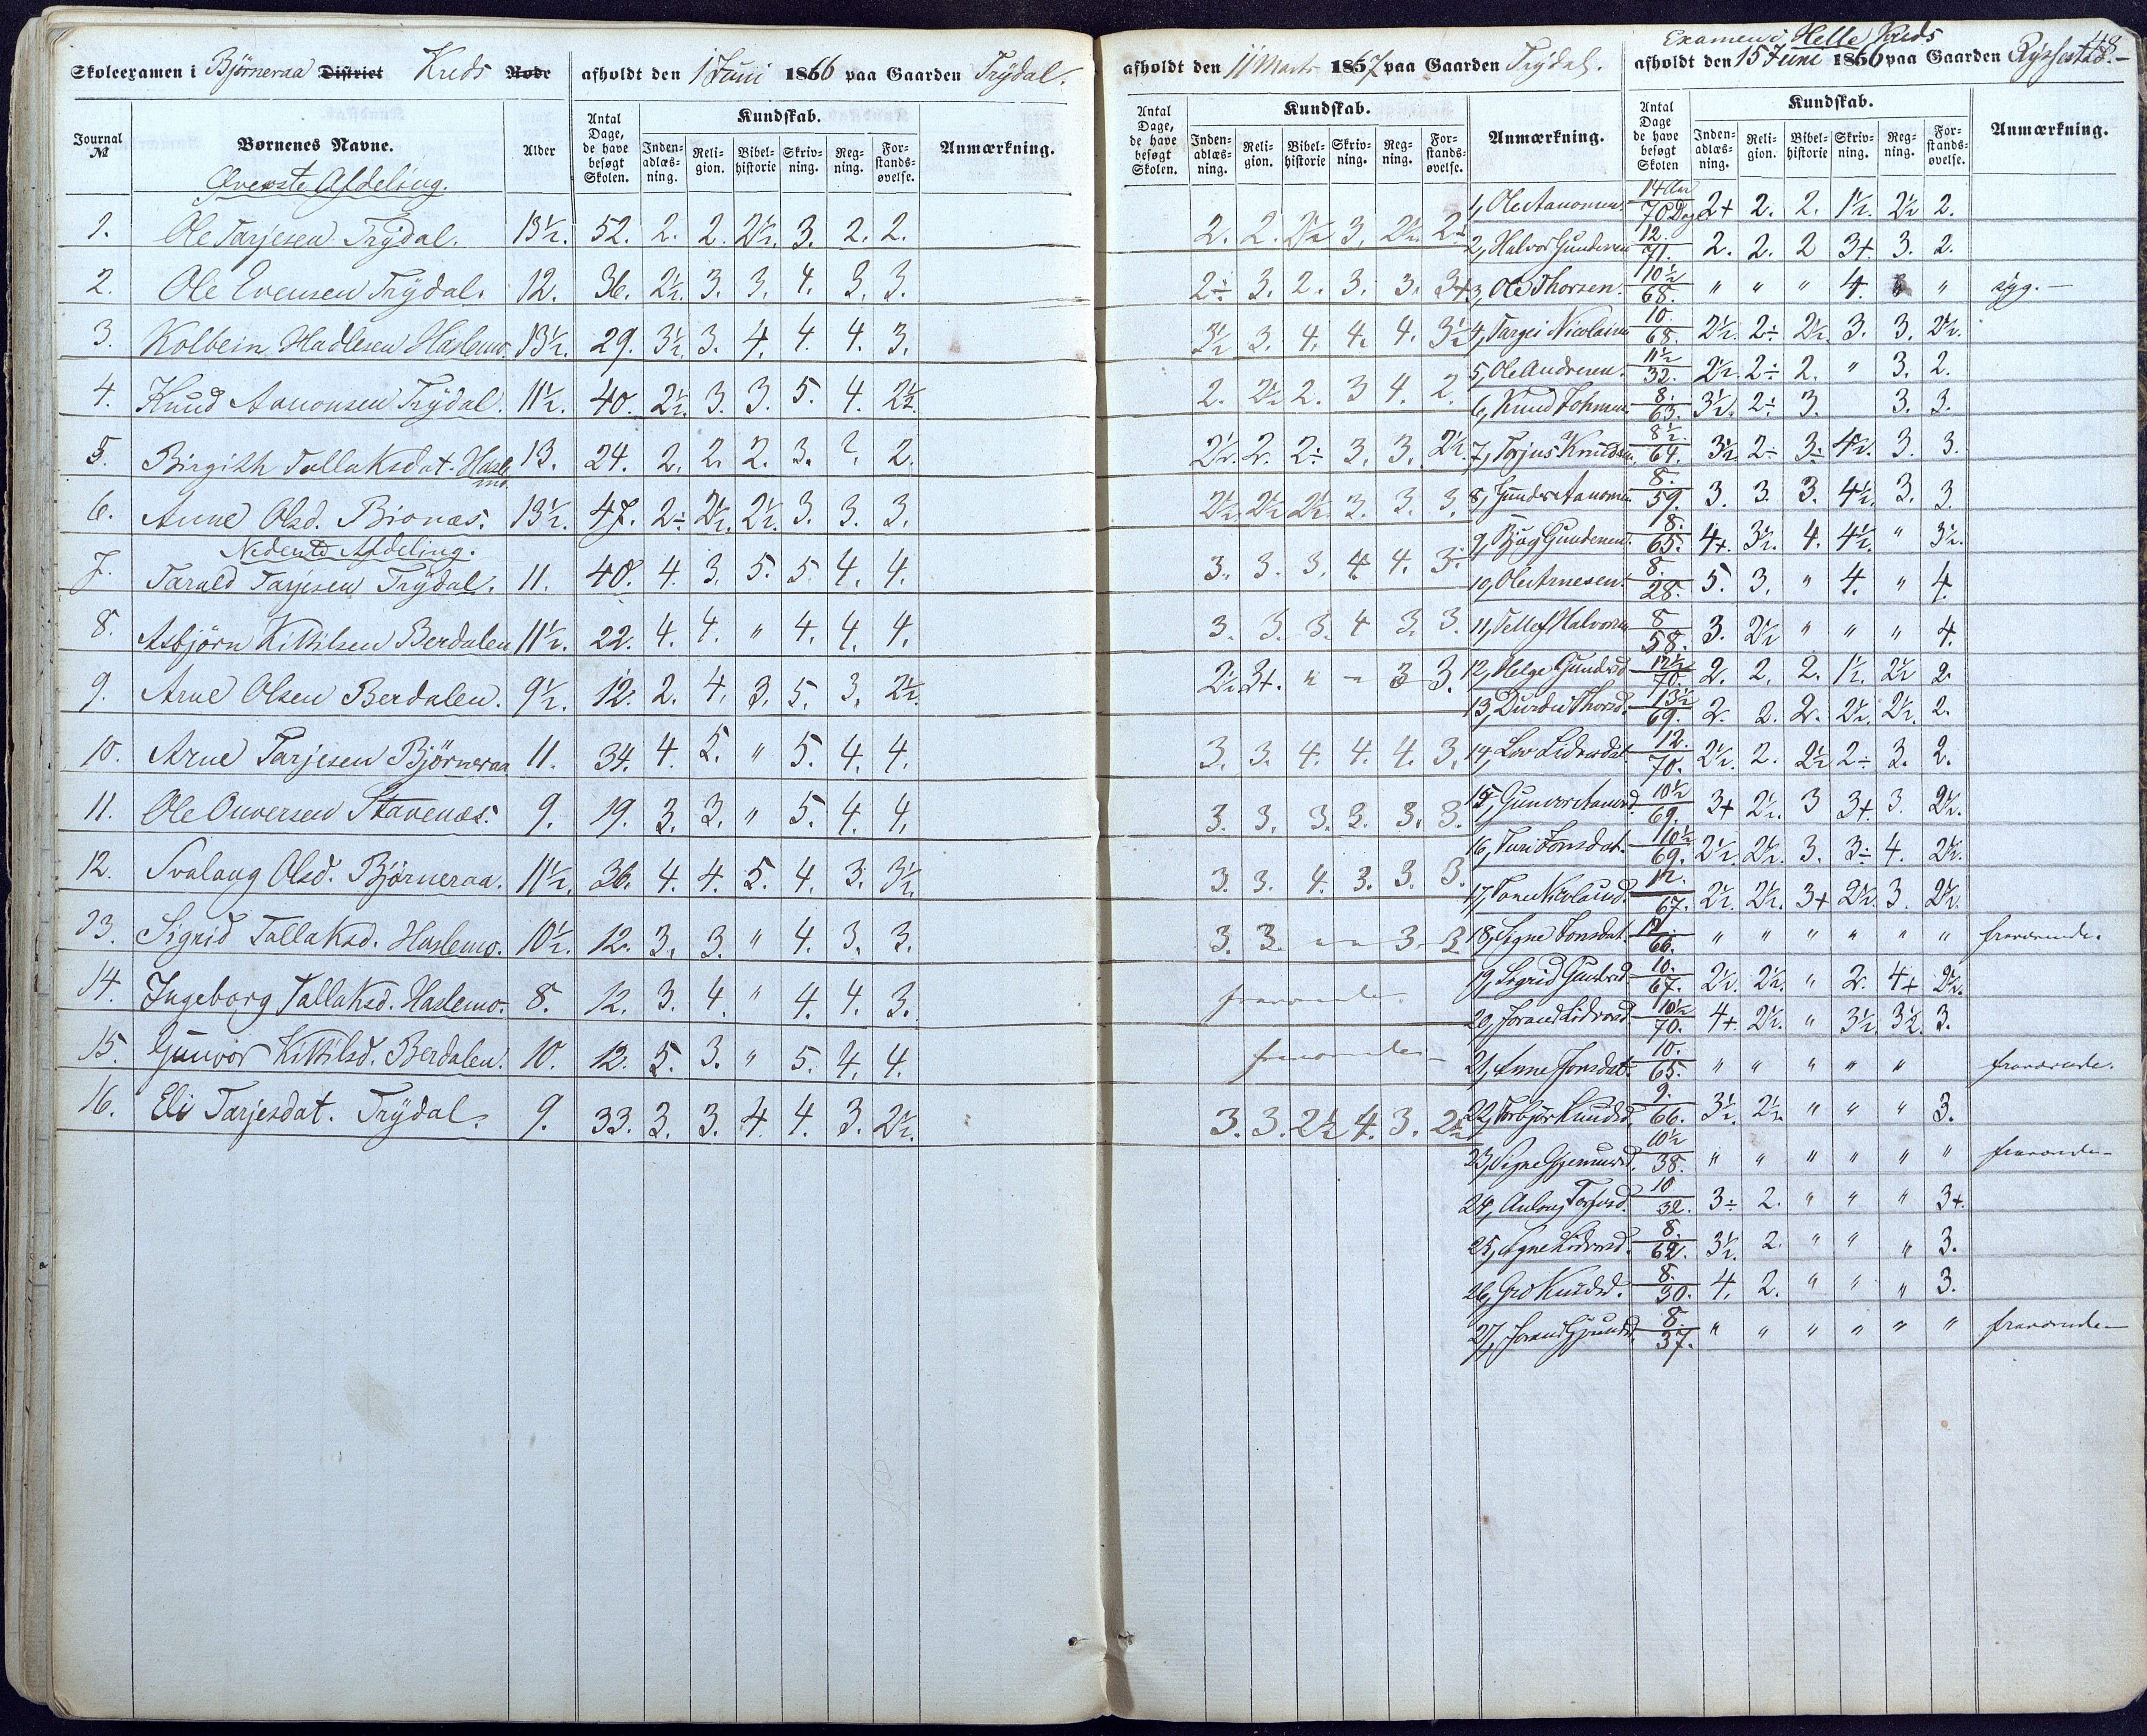 Skoleexamen i Bjørneraa District Kreds Rode afholdt den 1 Juni 1866 paa Gaarden Trydal.
Journal № Børnenes Navne. Alder Antal Dage, de have besøgt Skolen. Kundskab. Indenadlæsning. Religion. Bibelhistorie Skrivning. Regning. Forstandsøvelse. Anmærkning.
Øverste Afdeling.
1. Ole Tarjesen Trydal. 13½. 52. 2. 2. 2½. 3. 2. 2.
2. Ole Evensen Trydal. 12. 36. 2½. 3. 3. 4. 3. 3.
3. Kolbein Hadlesen Haslemo. 13½. 29. 3½. 3. 4. 4. 4. 3.
4. Knud Aanonsen Trydal. 11½. 40. 2½. 3. 3. 5. 4. 2½.
5. Birgith Tallaksdat. Haslemo. 13. 24. 2. 2. 2. 3. 2. 2.
6. Anne Olsd. Bionæs. 13½. 47. 2÷ 2½. 2½. 3. 3. 3.
Nederste Afdeling.
7. Tarald Tarjesen Trydal. 11. 40. 4. 3. 5. 5. 4. 4.
8. Asbjørn Kittilsen Berdalen 11½. 22. 4. 4. " 4. 4. 4.
9. Arne Olsen Berdalen. 9½. 12. 2. 4. 3. 5. 3. 2½.
10. Arne Tarjesen Bjørneraa 11. 34. 4. 5. " 5. 4. 4.
11. Ole Onversen Stavenæs. 9. 19. 3. 3. " 5. 4. 4.
12. Svalaug Olsd. Bjørneraa. 11½. 36. 4. 4. 5. 4. 3. 3½.
13. Sigrid Tallaksd. Haslemo. 10½. 12. 3. 3. " 4. 3. 3.
14. Ingeborg Tallaksd. Haslemo. 8. 12. 3. 4. " 4. 4. 3.
15. Gunvor Kittilsd. Berdalen. 10. 12. 5. 3. " 5. 4. 4.
16. Eli Tarjesdat. Trydal. 9. 33. 3. 3. 4. 4. 3. 2½.
afholdt den 11 Marts 1867 paa Gaarden Trydal.
Antal Dage, de have besøgt Skolen. Kundskab. Indenadlæsning. Religion. Bibelhistorie Skrivning. Regning. Forstandsøvelse. Anmærkning.
2. 2. 2½ 3. 2½. 2÷
2÷ 3. 2. 3. 3. 3+
3½ 3. 4. 4. 4. 3½
2. 2½ 2. 3 4. 2.
2½. 2. 2÷ 3. 3. 2½.
2½. 2½ 2½. 3. 3. 3.
3. 3. 3. 4. 4. 3÷
3. 3. 3. 4 3. 3.
2½ 3+. " " 3 3.
3. 3. 4. 4. 4. 3.
3. 3. 3. 3. 3. 3.
3. 3. 4. 3. 3. 3.
3. 3. " " 3. 3.
fraværende.
fraværende
3. 3. 2½ 4. 3. 2½
48
Examen i Helle Kreds
afholdt den 15 Juni 1866 paa Gaarden Rysstad.
Antal Dage de have besøgt Skolen Kundskab. Indenadlæsning. Religion. Bibelhistorie Skrivning. Regning. Forstandsøvelse. Anmærkning.
1, Ole Aanonsen. 14 Aar 70 Dag 2+ 2. 2. 1½. 2½ 2.
2, Halvor Gundersen 12. 71. 2. 2. 2 3+ 3. 2.
3, Ole Thorsen. 10½ 68. " " " 4. " syg.
4, Targei Nicolaisen 10. 68. 2½. 2÷ 2½. 3. 3. 2½.
5, Ole Andresen. 11½ 32. 2½. 2÷ 2. " 3. 2.
6, Knud Johnsen 8. 63. 3½. 2÷ 3. 3. 3.
7, Torjus Knudsen. 8½. 64. 3½ 2÷ 3÷ 4½. 3. 3.
8, Gunder Aanonsen 8. 59. 3. 3. 3. 4½. 3. 3.
9, Gundersen. 8. 65. 4+. 3½. 4. 4½. " 3½.
10, Ole Arnesen. 8. 28. 5. 3. " 4. " 4.
11, Tellef Halvorsen 8 58. 3. 2½ " " " 4.
12, Helge Gundersd. 12½ 70. 2. 2. 2. 1½. 2½ 2.
13, Thorsd. 13½ 69. 2. 2. 2. 2½. 2½. 2.
14, Liv Lidvorsdat. 12. 70. 2½. 2. 2½ 2÷ 3. 2.
15, Gunvor Aanonsd. 10½ 69. 3+ 2½. 3 3+. 3. 2½.
16, Turi Jonsdat. 10½ 69. 2½. 2½. 3. 3÷ 4. 2½.
17, 12. 67. 2½. 2½. 3+ 2½. 3. 2½.
18, Signe Jonsdat. 12 66. " " " " " " fraværende.
19, Sigrid Gundersd. 10. 67. 2½. 2½. " 2. 4+ 2½.
20, Jorand Lidvorsd. 10½ 70. 4+. 2½. " 3½. 3½. 3.
21, Anne Jonsdat. 10. 65. " " " " " fraværende.
22, Torbjør Knudsd. 9. 66. 3½. 2½. " " " 3.
23, Signe 10½ 38. " " " " " " fraværende
24, Aslaug Torjusd. 10 32. 3÷ 2. " " " 3+.
25, Signe Lidvorsd. 8. 62. 3½. 2. " " " 3.
26, Gro Knudsd. 8. 30. 4. 2. " " " 3.
27, Jorand 8. 37. " " " " " " fraværende